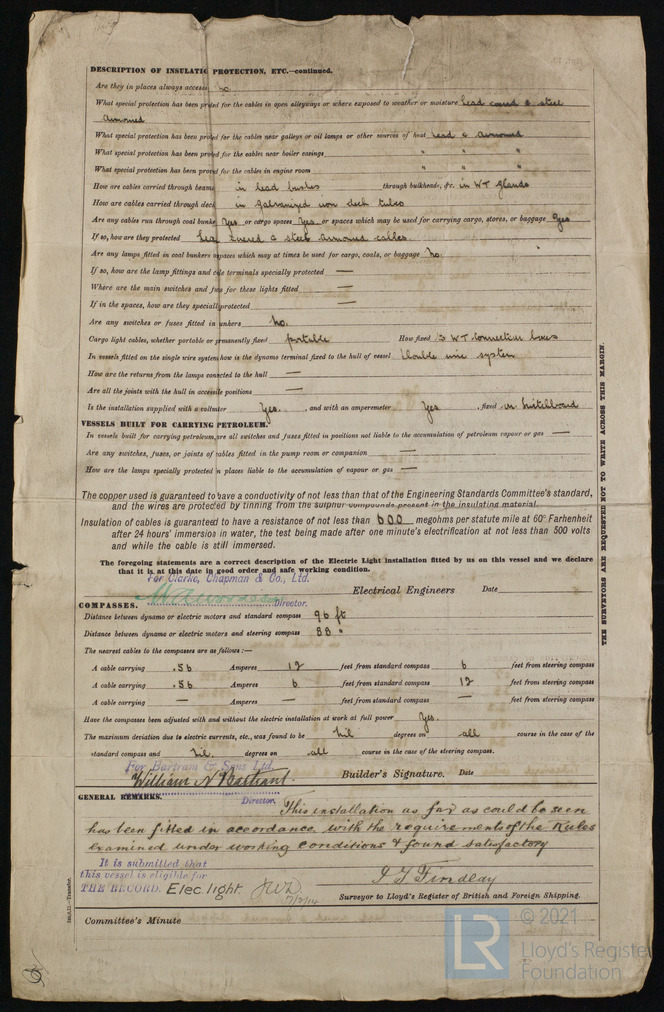 DESCRIPTION OF INSULATIO PROTECTION, ETC.—continued.
Are they in places always accessi no
What special protection has been pro ed for the cables in open alleyways or where exposed to weather or moisture Lead covered & steel
armoured
What special protection has been pro ed for the cables near galleys or oil lamps or other sources of heat Lead & armoured
What special protection has been pro ed for the cables near boiler casings " " "
What special protection has been prov for the cables in engine room " " "
How are cables carried through beams in lead bushes through bulkheads, &c. in WT glands
How are cables carried through deck in galvanized iron deck tubes
Are any cables run through coal bunke Yes or cargo spaces Yes or spaces which may be used for carrying cargo, stores, or baggage Yes
If so, how are they protected Lea covered & steel armoured cables.
Are any lamps fitted in coal bunkers spaces which may at times be used for cargo, coals, or baggage no.
If so, how are the lamp fittings and c le terminals specially protected —
Where are the main switches and fu s for these lights fitted —
If in the spaces, how are they specially protected —
Are any switches or fuses fitted in unkers no.
Cargo light cables, whether portable or p manently fixed portable How fixed 3 WT connection boxes
In vessels fitted on the single wire system how is the dynamo terminal fixed to the hull of vessel Double wire system
How are the returns from the lamps con cted to the hull —
Are all the joints with the hull in accessible positions —
Is the installation supplied with a voltmeter Yes. , and with an amperemeter Yes , fixed on switchboard
VESSELS BUILT FOR CARRYING PETROLEUM.
In vessels built for carrying petroleum, are all switches and fuses fitted in positions not liable to the accumulation of petroleum vapour or gas —
Are any switches, fuses, or joints of cables fitted in the pump room or companion —
How are the lamps specially protected in places liable to the accumulation of vapour or gas —
The copper used is guaranteed to have a conductivity of not less than that of the Engineering Standards Committee's standard,
and the wires are protected by tinning from the sulphur compounds present in the insulating material.
Insulation of cables is guaranteed to have a resistance of not less than 600 megohms per statute mile at 60° Farhenheit
after 24 hours' immersion in water, the test being made after one minute's electrification at not less than 500 volts
and while the cable is still immersed.
The foregoing statements are a correct description of the Electric Light installation fitted by us on this vessel and we declare
that it is at this date in good order and safe working condition.
For Clarke, Chapman & Co., Ltd.
Director. Electrical Engineers Date
COMPASSES.
Distance between dynamo or electric motors and standard compass 96 ft
Distance between dynamo or electric motors and steering compass 88 "
The nearest cables to the compasses are as follows:—
A cable carrying .56 Amperes 12 feet from standard compass 6 feet from steering compass
A cable carrying .56 Amperes 6 feet from standard compass 12 feet from steering compass
A cable carrying — Amperes — feet from standard compass — feet from steering compass
Have the compasses been adjusted with and without the electric installation at work at full power Yes.
The maximum deviation due to electric currents, etc., was found to be nil degrees on all course in the case of the
standard compass and nil. degrees on all course in the case of the steering compass.
For Bartram & Sons Ltd.
William N Bartram. Builder's Signature. Date
Director.
GENERAL REMARKS.
This installation as far as could be seen
has been fitted in accordance with the requirements of the Rules
examined under working conditions & found satisfactory
It is submitted that
this vessel is eligible for
THE RECORD. Elec. light. JWD 17/7/14
J. T. Findlay
Surveyor to Lloyd's Register of British and Foreign Shipping.
Committee's Minute
THE SURVEYORS ARE REQUESTED NOT TO WRITE ACROSS THIS MARGIN.
© 2021
LR Lloyd's Register
Foundation